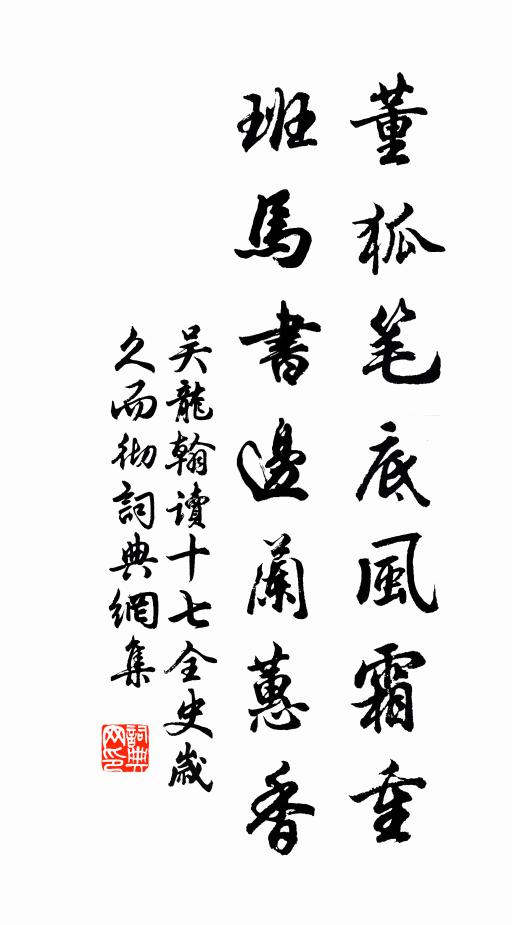 董狐笔底風霜重
班馬書邊蘭蕙香
吴龍翰讀十七全史歲
久而彻詞典網集
詞典网印